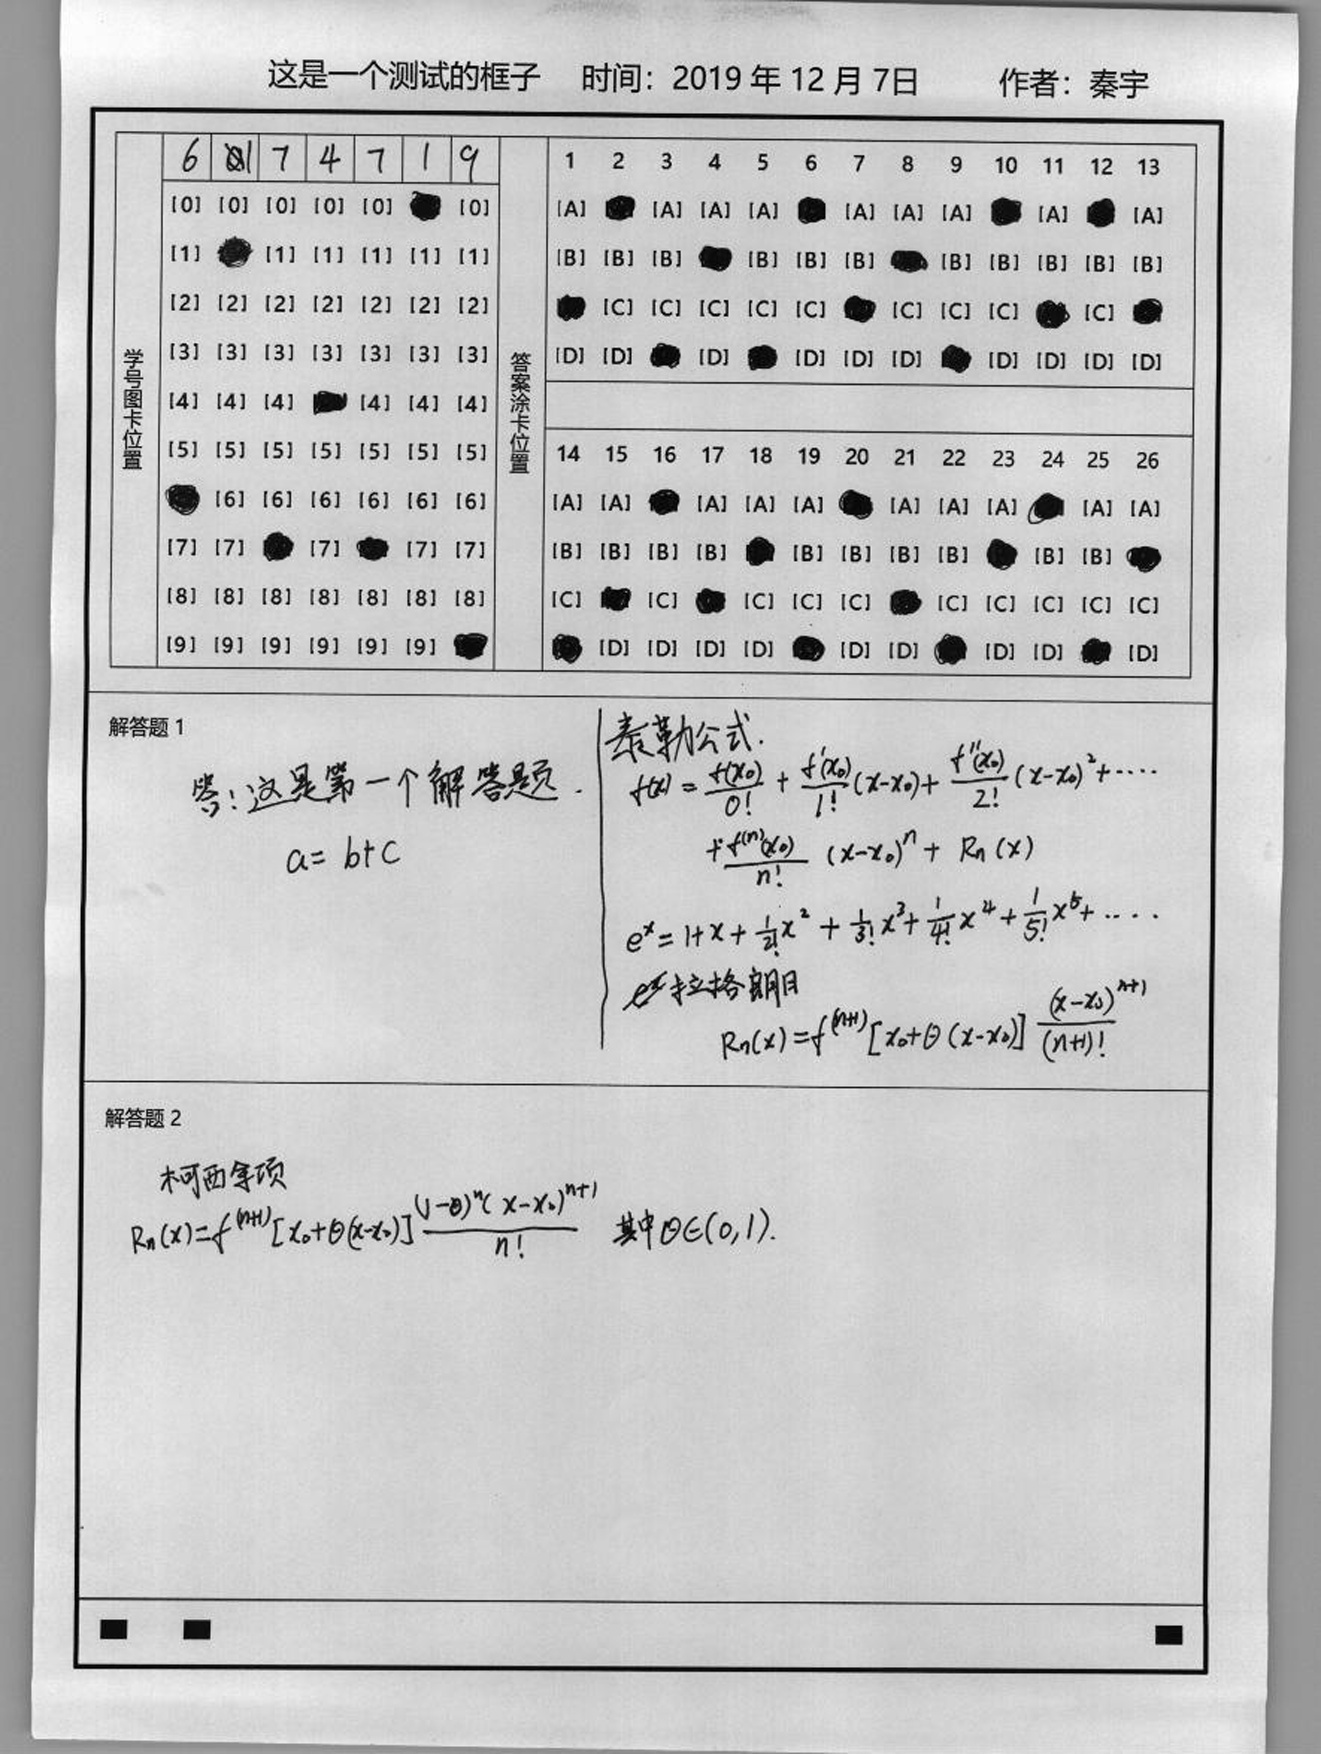 这是一个测试的框子 时间：2019 年 12 月 7日 作者：秦宇
学号图卡位置
6 1 7 4 7 1 9
[0] [0] [0] [0] [0] [0]
[1] [1] [1] [1] [1] [1]
[2] [2] [2] [2] [2] [2] [2]
[3] [3] [3] [3] [3] [3] [3]
[4] [4] [4] [4] [4] [4]
[5] [5] [5] [5] [5] [5] [5]
[6] [6] [6] [6] [6] [6]
[7] [7] [7] [7] [7]
[8] [8] [8] [8] [8] [8] [8]
[9] [9] [9] [9] [9] [9]
答案涂卡位置
1 2 3 4 5 6 7 8 9 10 11 12 13
[A] [A] [A] [A] [A] [A] [A] [A] [A]
[B] [B] [B] [B] [B] [B] [B] [B] [B] [B] [B]
[C] [C] [C] [C] [C] [C] [C] [C] [C]
[D] [D] [D] [D] [D] [D] [D] [D] [D] [D]
14 15 16 17 18 19 20 21 22 23 24 25 26
[A] [A] [A] [A] [A] [A] [A] [A] [A] [A]
[B] [B] [B] [B] [B] [B] [B] [B] [B] [B]
[C] [C] [C] [C] [C] [C] [C] [C] [C] [C]
[D] [D] [D] [D] [D] [D] [D] [D] [D]
解答题 1
答：这是第一个解答题.
a= b+c
泰勒公式.
f(x) = f(x₀)/0! + f'(x₀)/1! (x-x₀) + f''(x₀)/2! (x-x₀)² + ····
+ f⁽ⁿ⁾(x₀)/n! (x-x₀)ⁿ + Rn(x)
eˣ = 1+x+ 1/2! x² + 1/3! x³ + 1/4! x⁴ + 1/5! x⁵ + ····
拉格朗日
Rn(x) = f⁽ⁿ⁺¹⁾[x₀+θ(x-x₀)] (x-x₀)ⁿ⁺¹/(n+1)!
解答题 2
柯西余项
Rn(x) = f⁽ⁿ⁺¹⁾[x₀+θ(x-x₀)] (1-θ)ⁿ(x-x₀)ⁿ⁺¹/n! 其中θ∈(0,1).